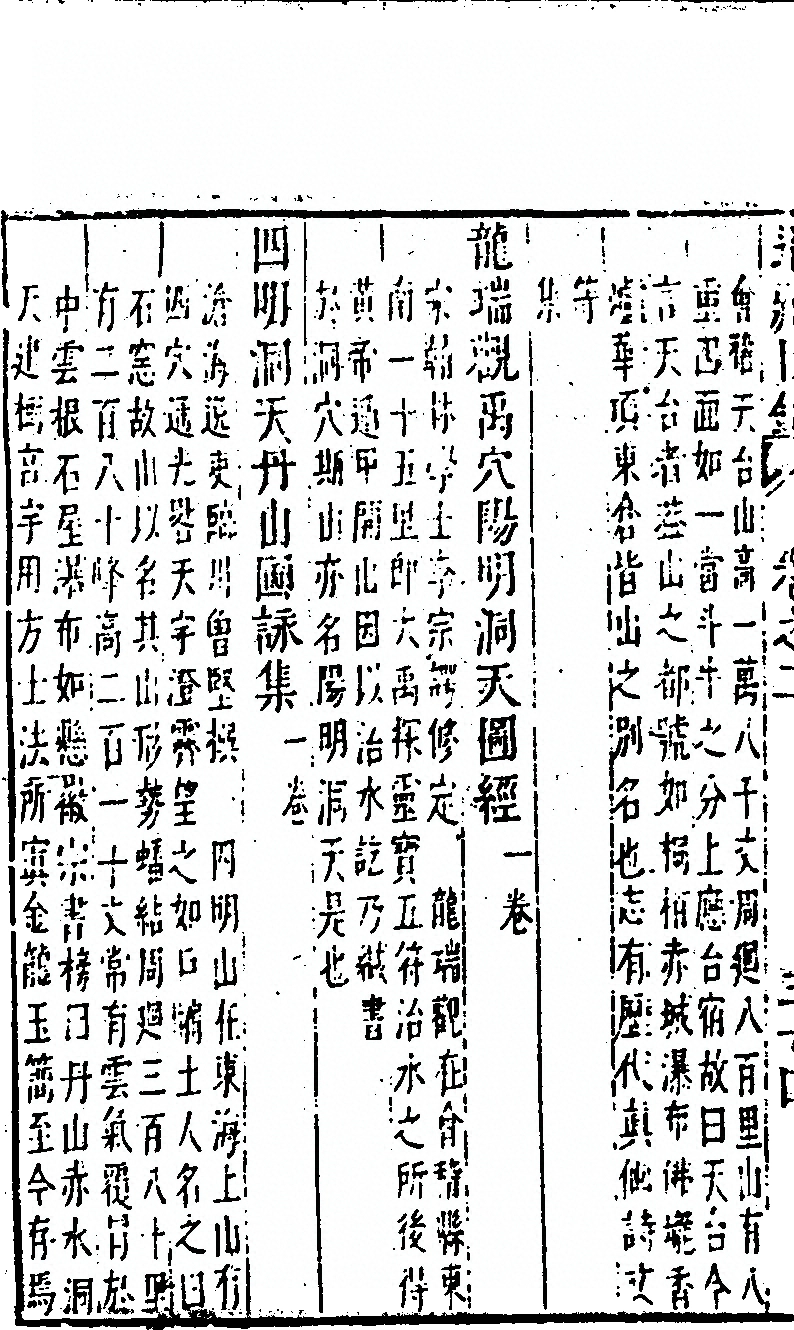 卷之二
會稽天台山高一萬八千丈周廻八百里山有八
重四面如一當斗牛之分上應台宿故曰天台今
言天台者蓋山之都號如桐栢赤城瀑布佛壠香
爐華頂東倉皆山之別名也志有歷代眞仙詩文
等
集
龍瑞觀禹穴陽明洞天圖經一卷
宋翰林學士李宗諤修定 龍瑞觀在會稽縣東
南一十五里即大禹探靈寶五符治水之所後得
黃帝遁甲開山因以治水訖乃藏書
於洞穴斯山亦名陽明洞天是也
四明洞天丹山圖詠集一卷
滄海逸吏臨川曾堅撰 四明山在東海上山有
四穴通光每天宇澄霽望之如戶牖土人名之曰
石窓故山以名其山形勢蟠結周廻三百八十里
有二百八十峰高二百一十丈常有雲氣覆冒於
中雲根石屋瀑布如懸 宋書榜曰丹山赤水洞
天建 宇用方士法所 金龍玉簡至今存焉